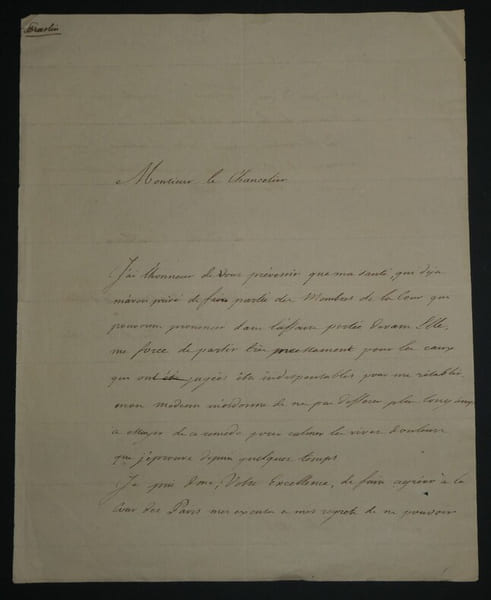 Praslin
Monsieur le Chancelier
J'ai l'honneur de vous prévenir que ma santé, qui déja
m'avoit privé de faire partie des Membres de la Cour qui
pouvoient prononcer dans l'affaire portée devant Elle,
me force de partir très prochainement pour les eaux
qui ont été jugées être indispensables pour me rétablir,
mon medecin m'ordonne de ne pas differer plus longtemps
a essayer de ce remede pour calmer les vives douleurs
que j'éprouve depuis quelques temps
Je prie donc, Votre Excellence, de faire agréer à la
Cour des Pairs mes excuses et mes regrets de ne pouvoir